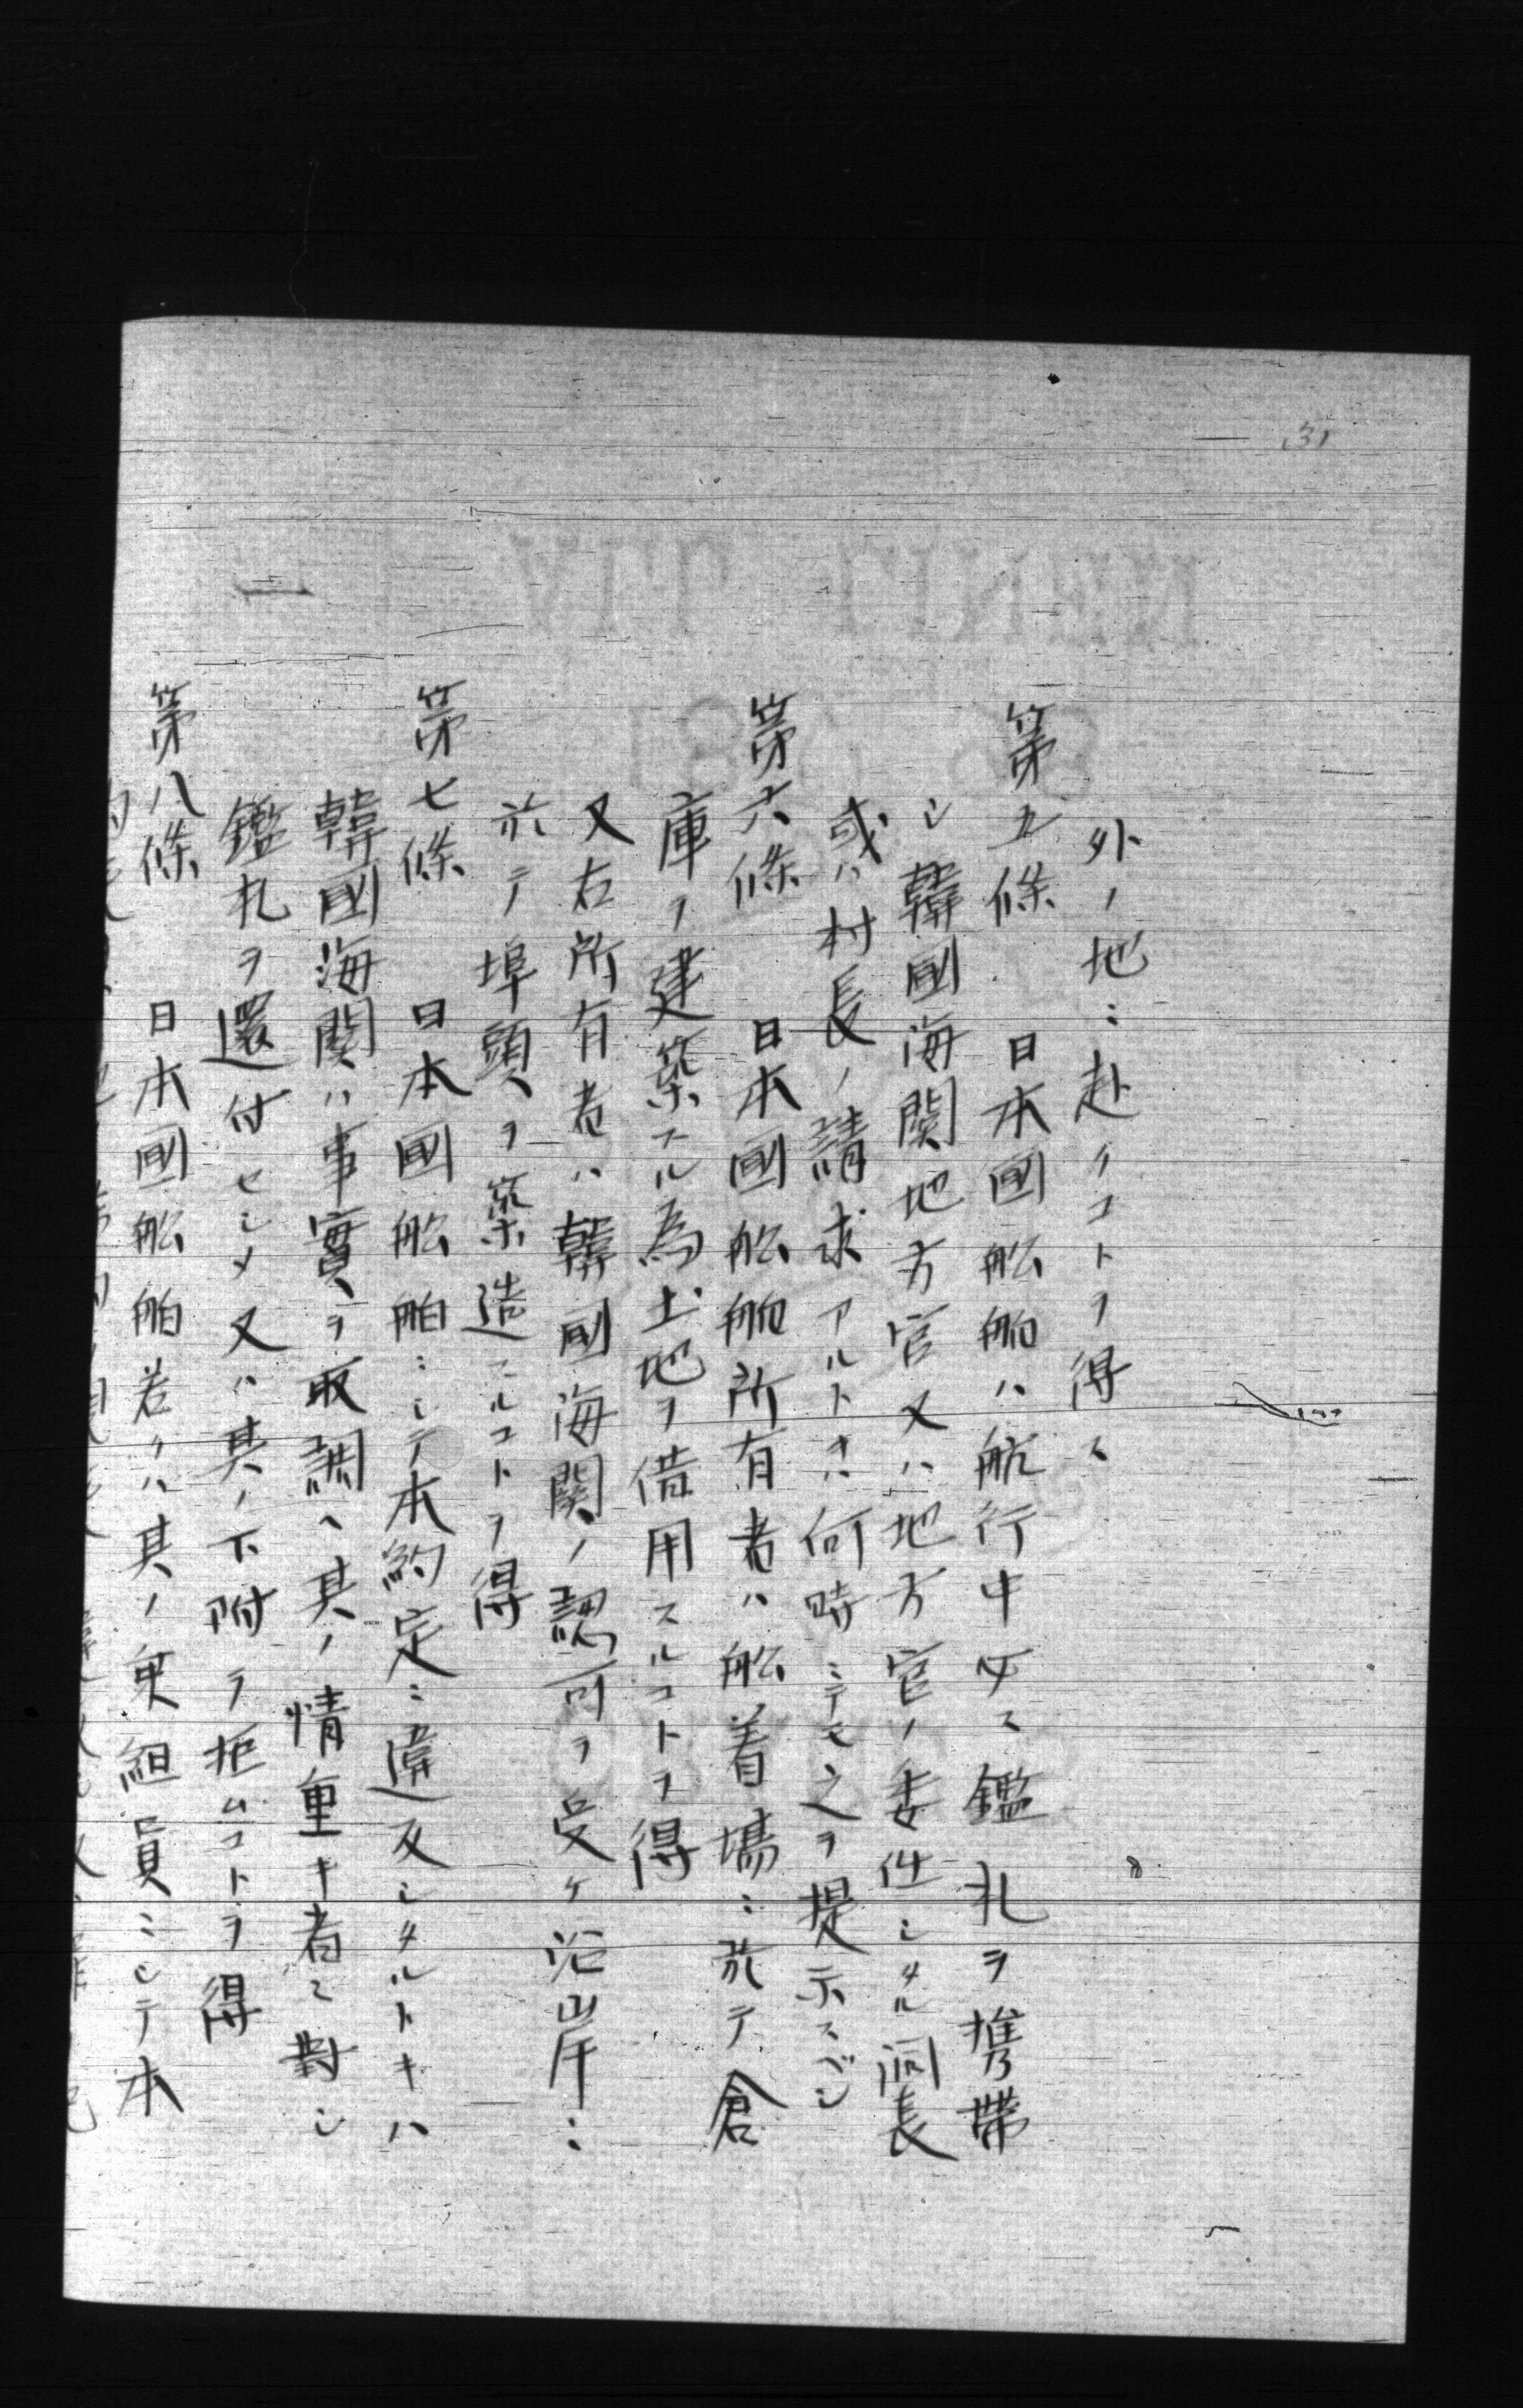 外ノ地ニ赴クコトヲ得ス
第五條　日本國船舶ハ航行中必ス鑑札ヲ携帶
シ韓國海関地方官又ハ地方官ノ委任シタル洞長
或ハ村長ノ請求アルトキハ何時ニテモ之ヲ提示スベシ
第六條　日本國船舶所有者ハ船着場ニ於テ倉
庫ヲ建築スル為土地ヲ借用スルコトヲ得
又右所有者ハ韓國海関ノ認可ヲ受ケ沿岸ニ
於テ埠頭ヲ築造スルコトヲ得
第七條　日本國船舶ニシテ本約定ニ違反シタルトキハ
韓國海関ハ事實ヲ取調ヘ其ノ情重キ者ニ對シ
鑑札ヲ還付セシメ又ハ其ノ下附ヲ拒ムコトヲ得
第八條　日本國船舶若クハ其ノ乗組員ニシテ本